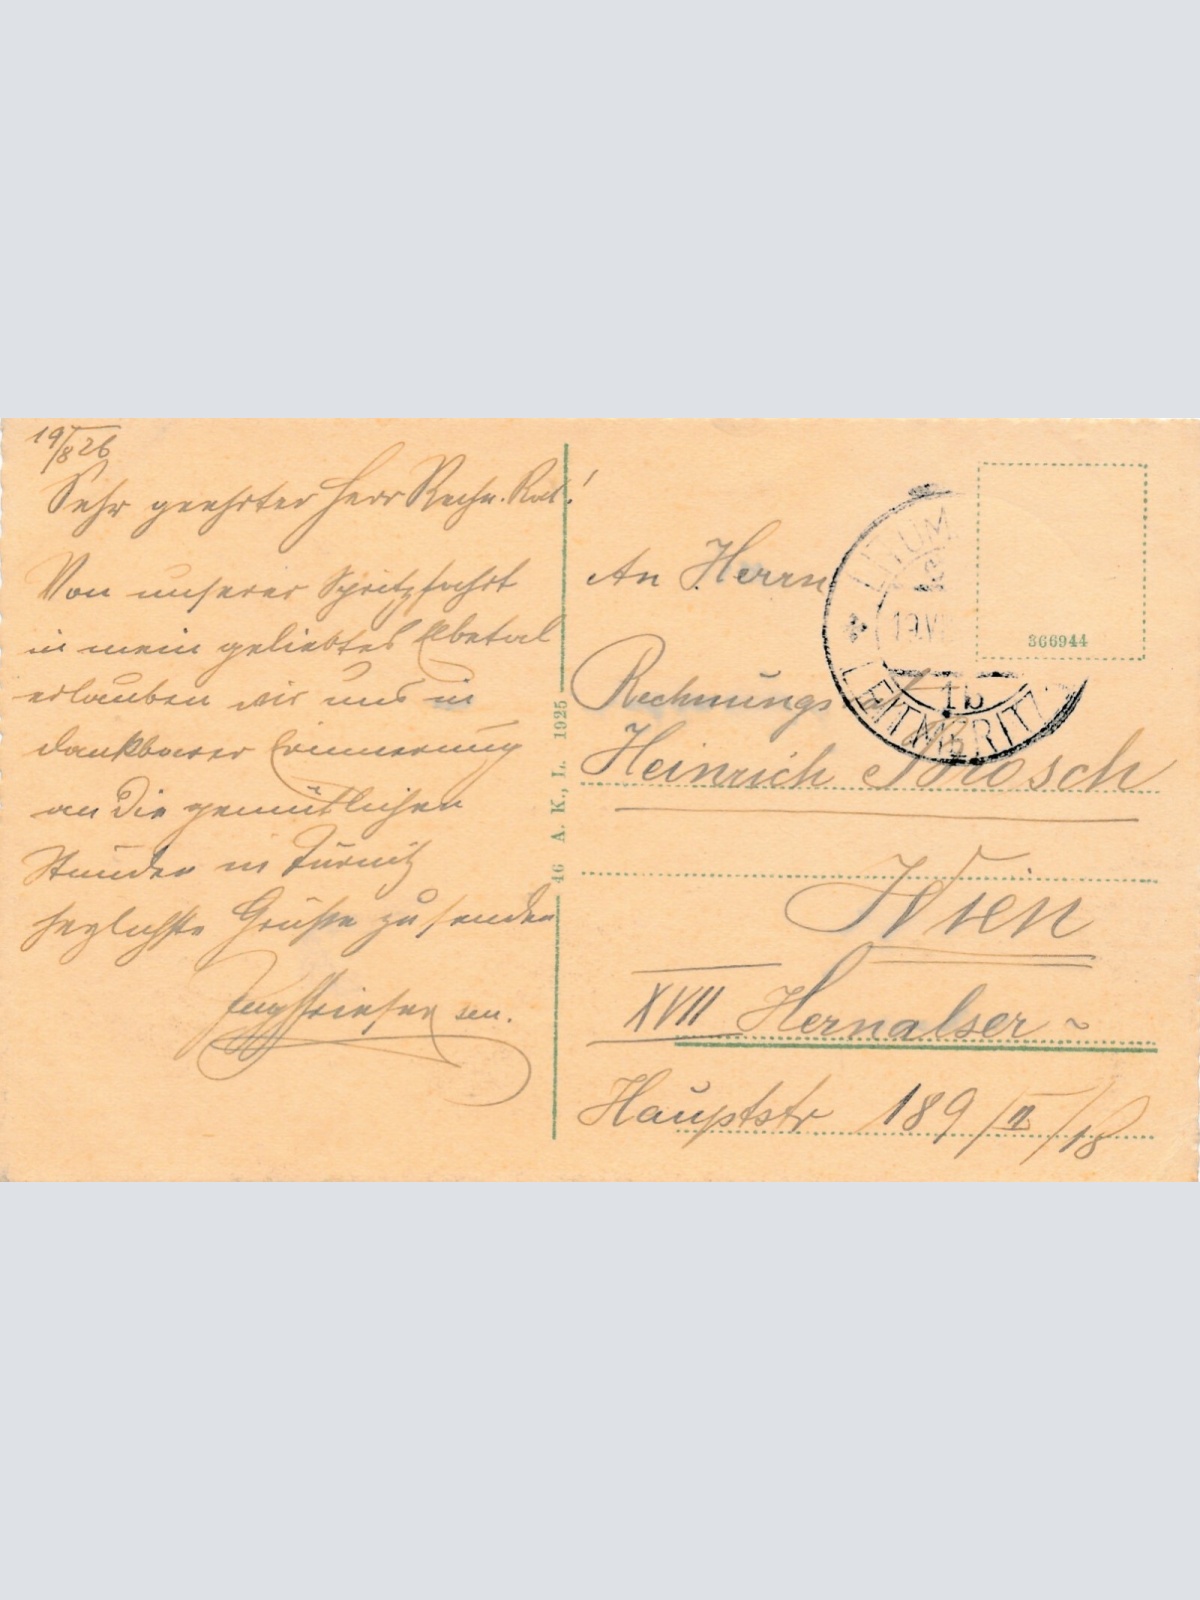 19/8 26
Sehr geehrter Herr Rechn. Rat!
Von unserer Spritzfahrt
in mein geliebtes Elbetal
erlauben wir uns in
dankbarer Erinnerung
an die gemütlichen
Stunden in Türnitz
herzlichste Grüße zu senden
sen.
46 A. K., L. 1925
An Herrn
Rechnungs
Heinrich Brosch
Wien
XVII Hernalser ~
Hauptstr 189/II/18
366944
LITOM
19.VI
1b
LEITMERITZ